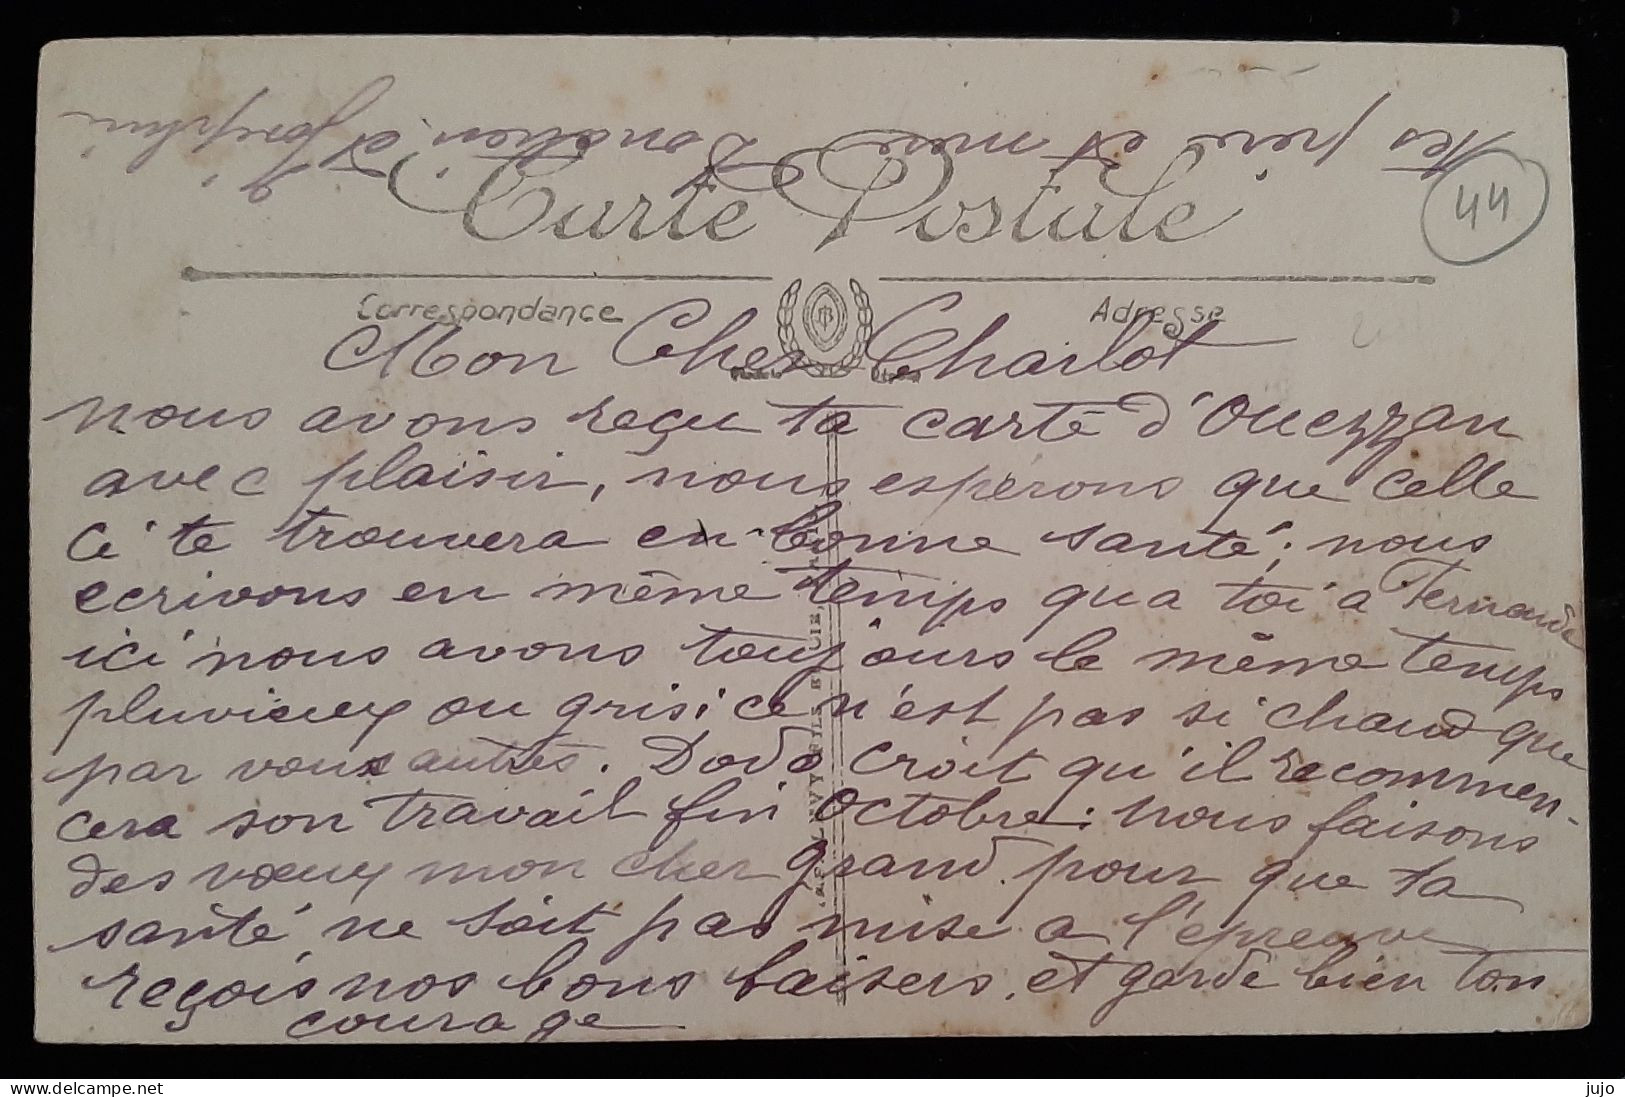 Tes père et mère Donatien et Joséphine
Carte Postale
44
Correspondance
Adresse
Mon Cher Charlot
nous avons reçu ta carte d'Ouezzan
avec plaisir, nous espérons que celle
ci te trouvera en bonne santé; nous
ecrivons en même temps qu a toi a Fernande
ici nous avons toujours le même temps
pluvieux ou gris; ce n'est pas si chaud que
par vous autres. Dodo croit qu'il recommen-
cera son travail fin Octobre: nous faisons
des vœux mon cher grand pour que ta
santé ne soit pas mise a l'épreuve
reçois nos bons baisers, et garde bien ton
courage
delcampe.net
jujo